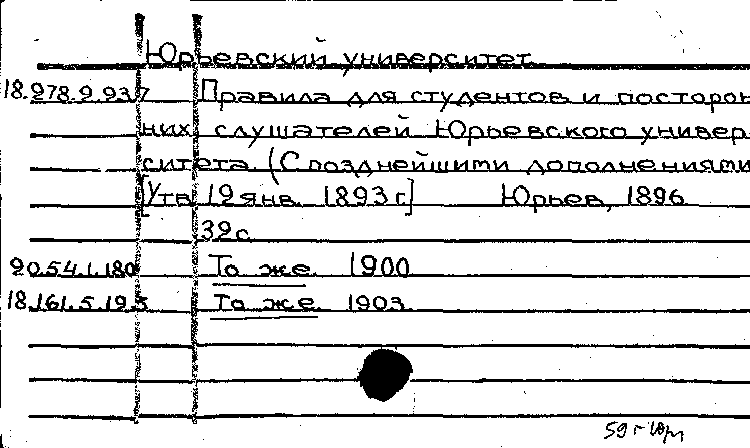 Юрьевский университет
18.278.2.237 Правила для студентов и посторон
них слушателей Юрьевского универ
ситета (С позднейшими дополнениями
[Утв. 12 янв. 1893 г.] Юрьев, 1896
32 с.
20.54.1.180 То же. 1900
18.161.5.195 То же. 1903